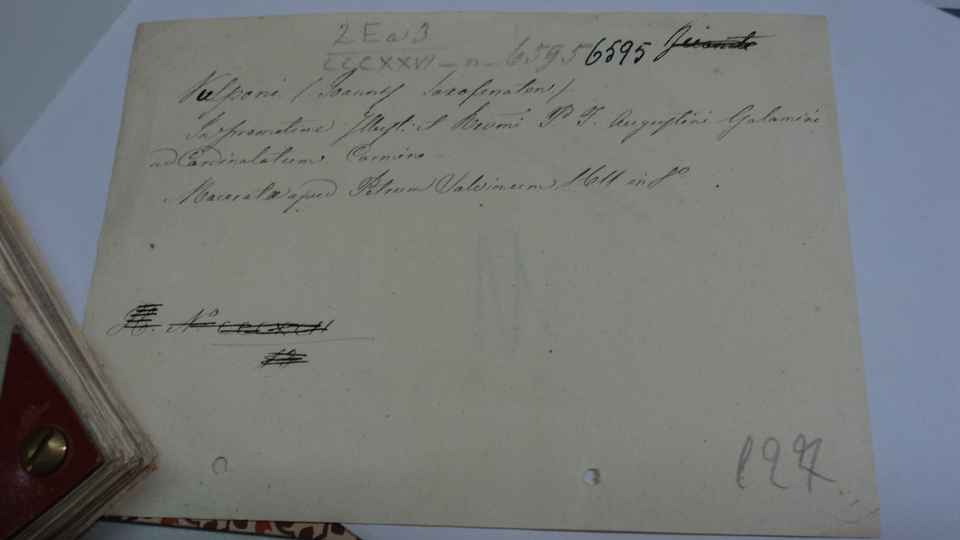 2 E a 3
CCCXXVI - n - 6595 6595
Vulponi (Joannes Saxofenatens)
In promotione Illust. et Revmi P. F. Augustini Galamini
ad Cardinalatum Carmina
Maceratæ apud Petrum Salvioneum 1611 in 4º
Nº
127